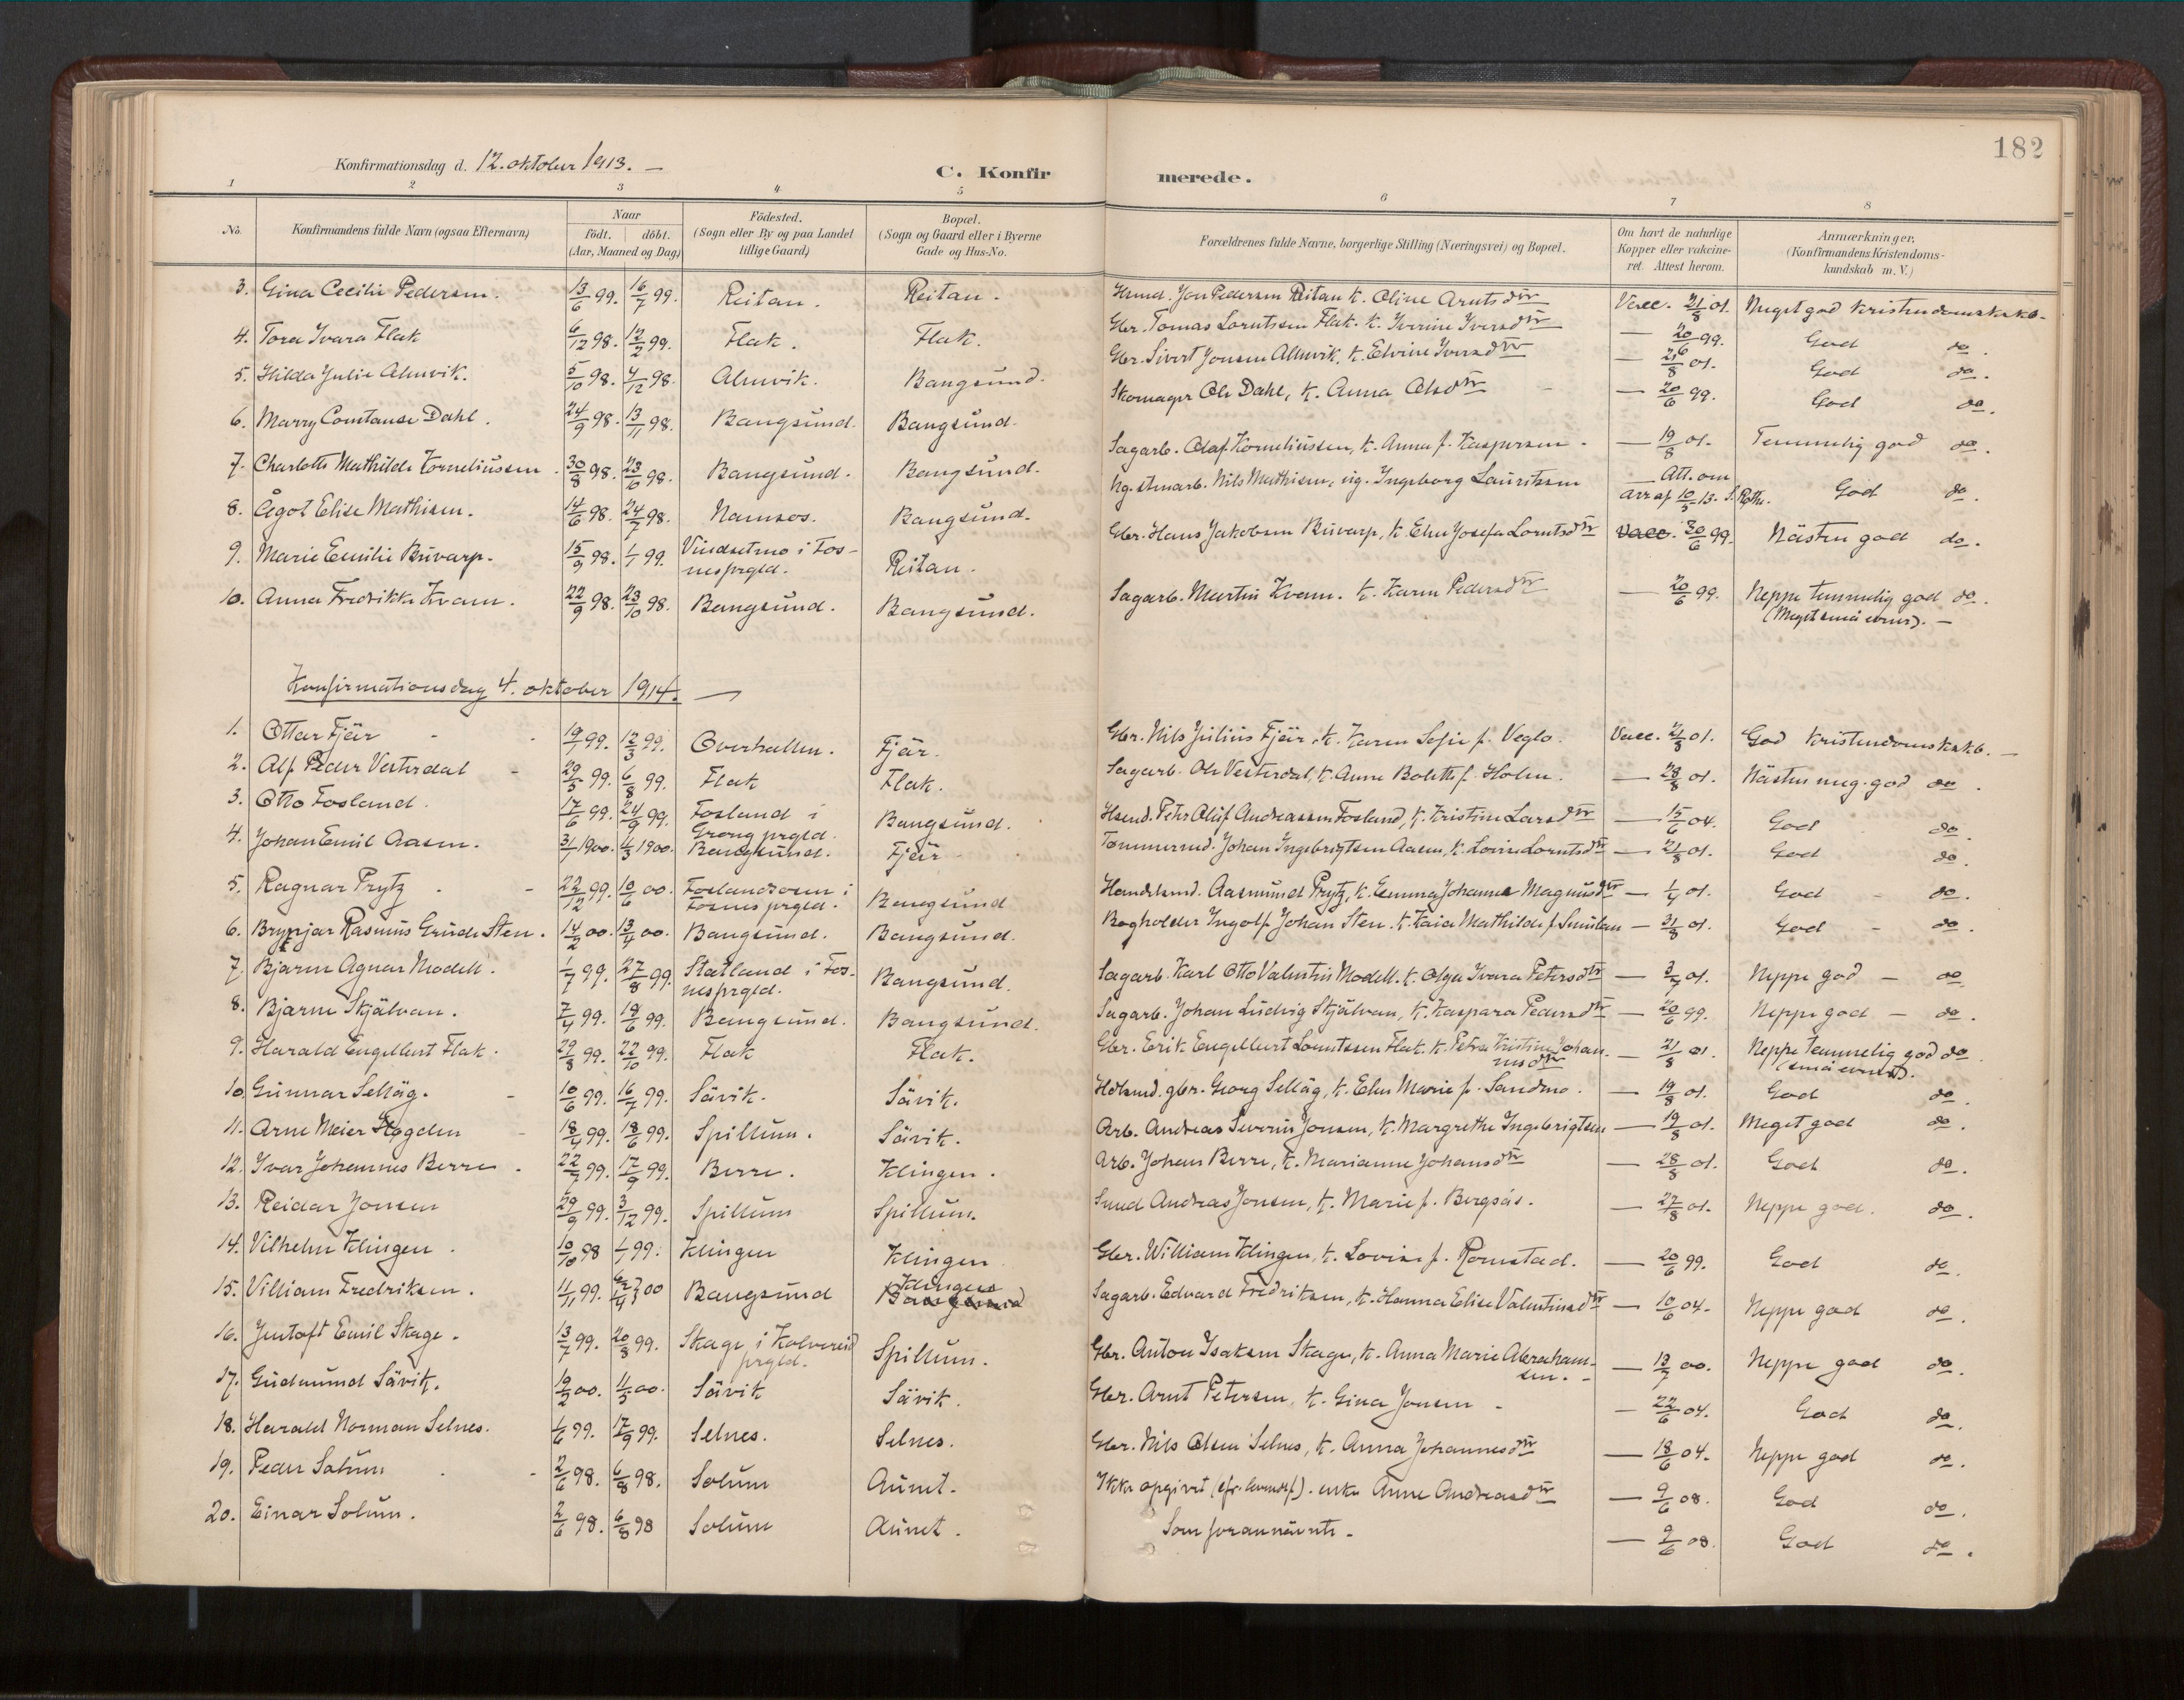 182
Konfirmationsdag d. 12. oktober 1913. —
C. Konfir merede.
1 2 3 4 5 6 7 8
No. Konfirmandens fulde Navn (ogsaa Efternavn) Naar födt. döbt. (Aar, Maaned og Dag) Födested. (Sogn eller By og paa Landet tillige Gaard) Bopæl. (Sogn og Gaard eller i Byerne Gade og Hus-No. Forældrenes fulde Navne, borgerlige Stilling (Næringsvei) og Bopæl. Om havt de naturlige Kopper eller vakcineret. Attest herom. Anmærkninger. (Konfirmandens Kristendomskundskab m. V.)
3. Gina Cecilie Pedersen. 13/6 99. 16/7 99. Reitan. Reitan. Hmd. Jon Pedersen Reitan k. Oline Arntsdtr Vacc. 21/8 01. Meget god kristendomskskb.
4. Tora Ivara Flak 6/12 98. 12/2 99. Flak. Flak. Gbr. Tomas Lorntsen Flak. k. Iverine Iversdtr — 20/6 99. God do.
5. Hilda Julie Almvik. 5/10 98. 4/12 98. Almvik. Bangsund. Gbr. Sivert Jonsen Almvik, k. Elvine Iversdtr — 21/8 01. God do.
6. Marry Constanse Dahl. 24/9 98. 13/11 98. Bangsund. Bangsund. Skomager Ole Dahl, k. Anna Olsdtr — 20/6 99. God do.
7. Charlotte Mathilde Korneliussen. 30/8 98. 23/10 98. Bangsund. Bangsund. Sagarb. Olaf Korneliussen, k. Anna f. Kaspersen. — 19/8 01. Temmelig god do.
8. Ågot Elise Mathisen. 14/6 98. 24/7 98. Namsos. Bangsund. Nils Mathisen, ug. Ingeborg Lauritsen — Att. om arr af 10/5 13. God do.
9. Marie Emilie Buvarp. 15/9 98. 1/1 99. Vindsetmo i Fosnes prgld. Reitan. Gbr. Hans Jakobsen Buvarp, k. Elen Josefa Lorntsdtr Vacc. 30/6 99. Nästen god do.
10. Anna Fredrikke Kvam. 22/9 98. 23/10 98. Bangsund. Bangsund. Sagarb. Martin Kvam. k. Karen Pedersdtr — 20/6 99. Neppe temmelig god do.
(Meget små evner). —
Konfirmationsdag 4. oktober 1914. —
1. Ottar Fjär 19/1 99. 12/3 99. Overhallen. Fjär. Gbr. Nils Julius Fjär, k. Karen Sofie f. Veglo. Vacc. 21/8 01. God kristendomskskb. —
2. Alf Peder Vesterdal 29/5 99. 6/8 99. Flak Flak. Sagarb. Ole Vesterdal, k. Anne Bolette f. Holm. — 28/8 01. Nästen meg. god do.
3. Otto Fosland. 17/6 99. 24/9 99. Fosland i Grong prgld. Bangsund. Hsmd. Peter Oluf Andreassen Fosland, k. Kristine Larsdtr — 15/6 04. God do.
4. Johan Emil Aasen. 31/1 1900. 11/3 1900. Bangsund. Fjär Tömmermd. Johan Ingebrigtsen Aasen, k. Lovise Lorntsdtr — 21/8 01. God do.
5. Ragnar Prytz 22/12 99. 10/6 00. Foslandsosen i Fosnes prgld. Bangsund Handelsmd. Aasmund Prytz, k. Emma Johanne Magnusdtr — 1/4 01. God do.
6. Brynjar Rasmus Grüde Sten. 14/2 00. 13/4 00. Bangsund. Bangsund. Bogholder Ingolf Johan Sten. k. Kaia Mathilde f. — 31/8 01. God do.
7. Bjarne Agnar Modell. 1/7 99. 27/8 99. Statland i Fosnes prgld. Bangsund. Sagarb. Karl Otto Valentin Modell. k. Olga Ivara Petersdtr — 3/7 01. Neppe god — do
8. Bjarne Skjälvan. 7/4 99. 18/6 99. Bangsund. Bangsund. Sagarb. Johan Ludvig Skjälvan, k. Kaspara Pedersdtr — 20/6 99. Neppe god — do.
9. Harald Engelbert Flak. 29/8 99. 22/10 99. Flak Flak. Gbr. Erik Engelbert Lorntssen Flak. k. Petra Kristine Johannesdtr — 21/8 01. Neppe temmelig god do.
(små evner).
10. Gunnar Selläg. 10/6 99. 16/7 99. Sävik. Sävik. gbr. Georg Selläg, k. Elen Marie f. Sandmo. — 19/8 01. God do.
11. Arne Meier Högden 18/4 99. 18/6 99. Spillum. Sävik. Arb. Andreas Severin Jonsen, k. Margrethe Ingebrigtsen — 19/8 01. Meget god do.
12. Ivar Johannes Berre. 22/7 99. 17/9 99. Berre. Klingen. Arb. Johan Berre, k. Marianne Johansdtr — 28/8 01. God do.
13. Reidar Jonsen 29/9 99. 3/12 99. Spillum Spillum. Smed Andreas Jonsen, k. Marie f. Bergsås. — 27/8 01. Neppe god. do.
14. Vilhelm Klingen. 10/10 98 1/1 99. Klingen Klingen Gbr. William Klingen, k. Lovise f. Romstad. — 20/6 99. God do.
15. Villiam Fredriksen. 11/11 99. 00 Bangsund Klingen Bangsund Sagarb. Edvard Fredriksen, k. Hanna Elise Valentinsdtr — 10/6 04. Neppe god do.
16. Jentoft Emil Skage. 13/7 99. 20/8 99. Skage i Kolvereid prgld. Spillum. Gbr. Anton Isaksen Skage, k. Anna Marie Abrahamsen. — 13/7 00. Neppe god do.
17. Gudmund Sävik. 19/2 00. 11/5 00. Sävik Sävik. Gbr. Arnt Petersen, k. Gina Jonsen — 22/6 04. God do.
18. Harald Norman Selnes. 1/6 99. 17/9 99. Selnes. Selnes. Gbr. Nils Olsen Selnes, k. Anna Johannesdtr — 18/6 04. Neppe god do.
19. Peder Solum 2/6 98. 6/8 98. Solum Aunet. Ikke opgivet enke Anne Andreasdtr — 9/6 08. God do.
20. Einar Solum. 2/6 98. 6/8 98 Solum Aunet. Som forannävnte. — 9/6 08. God do.